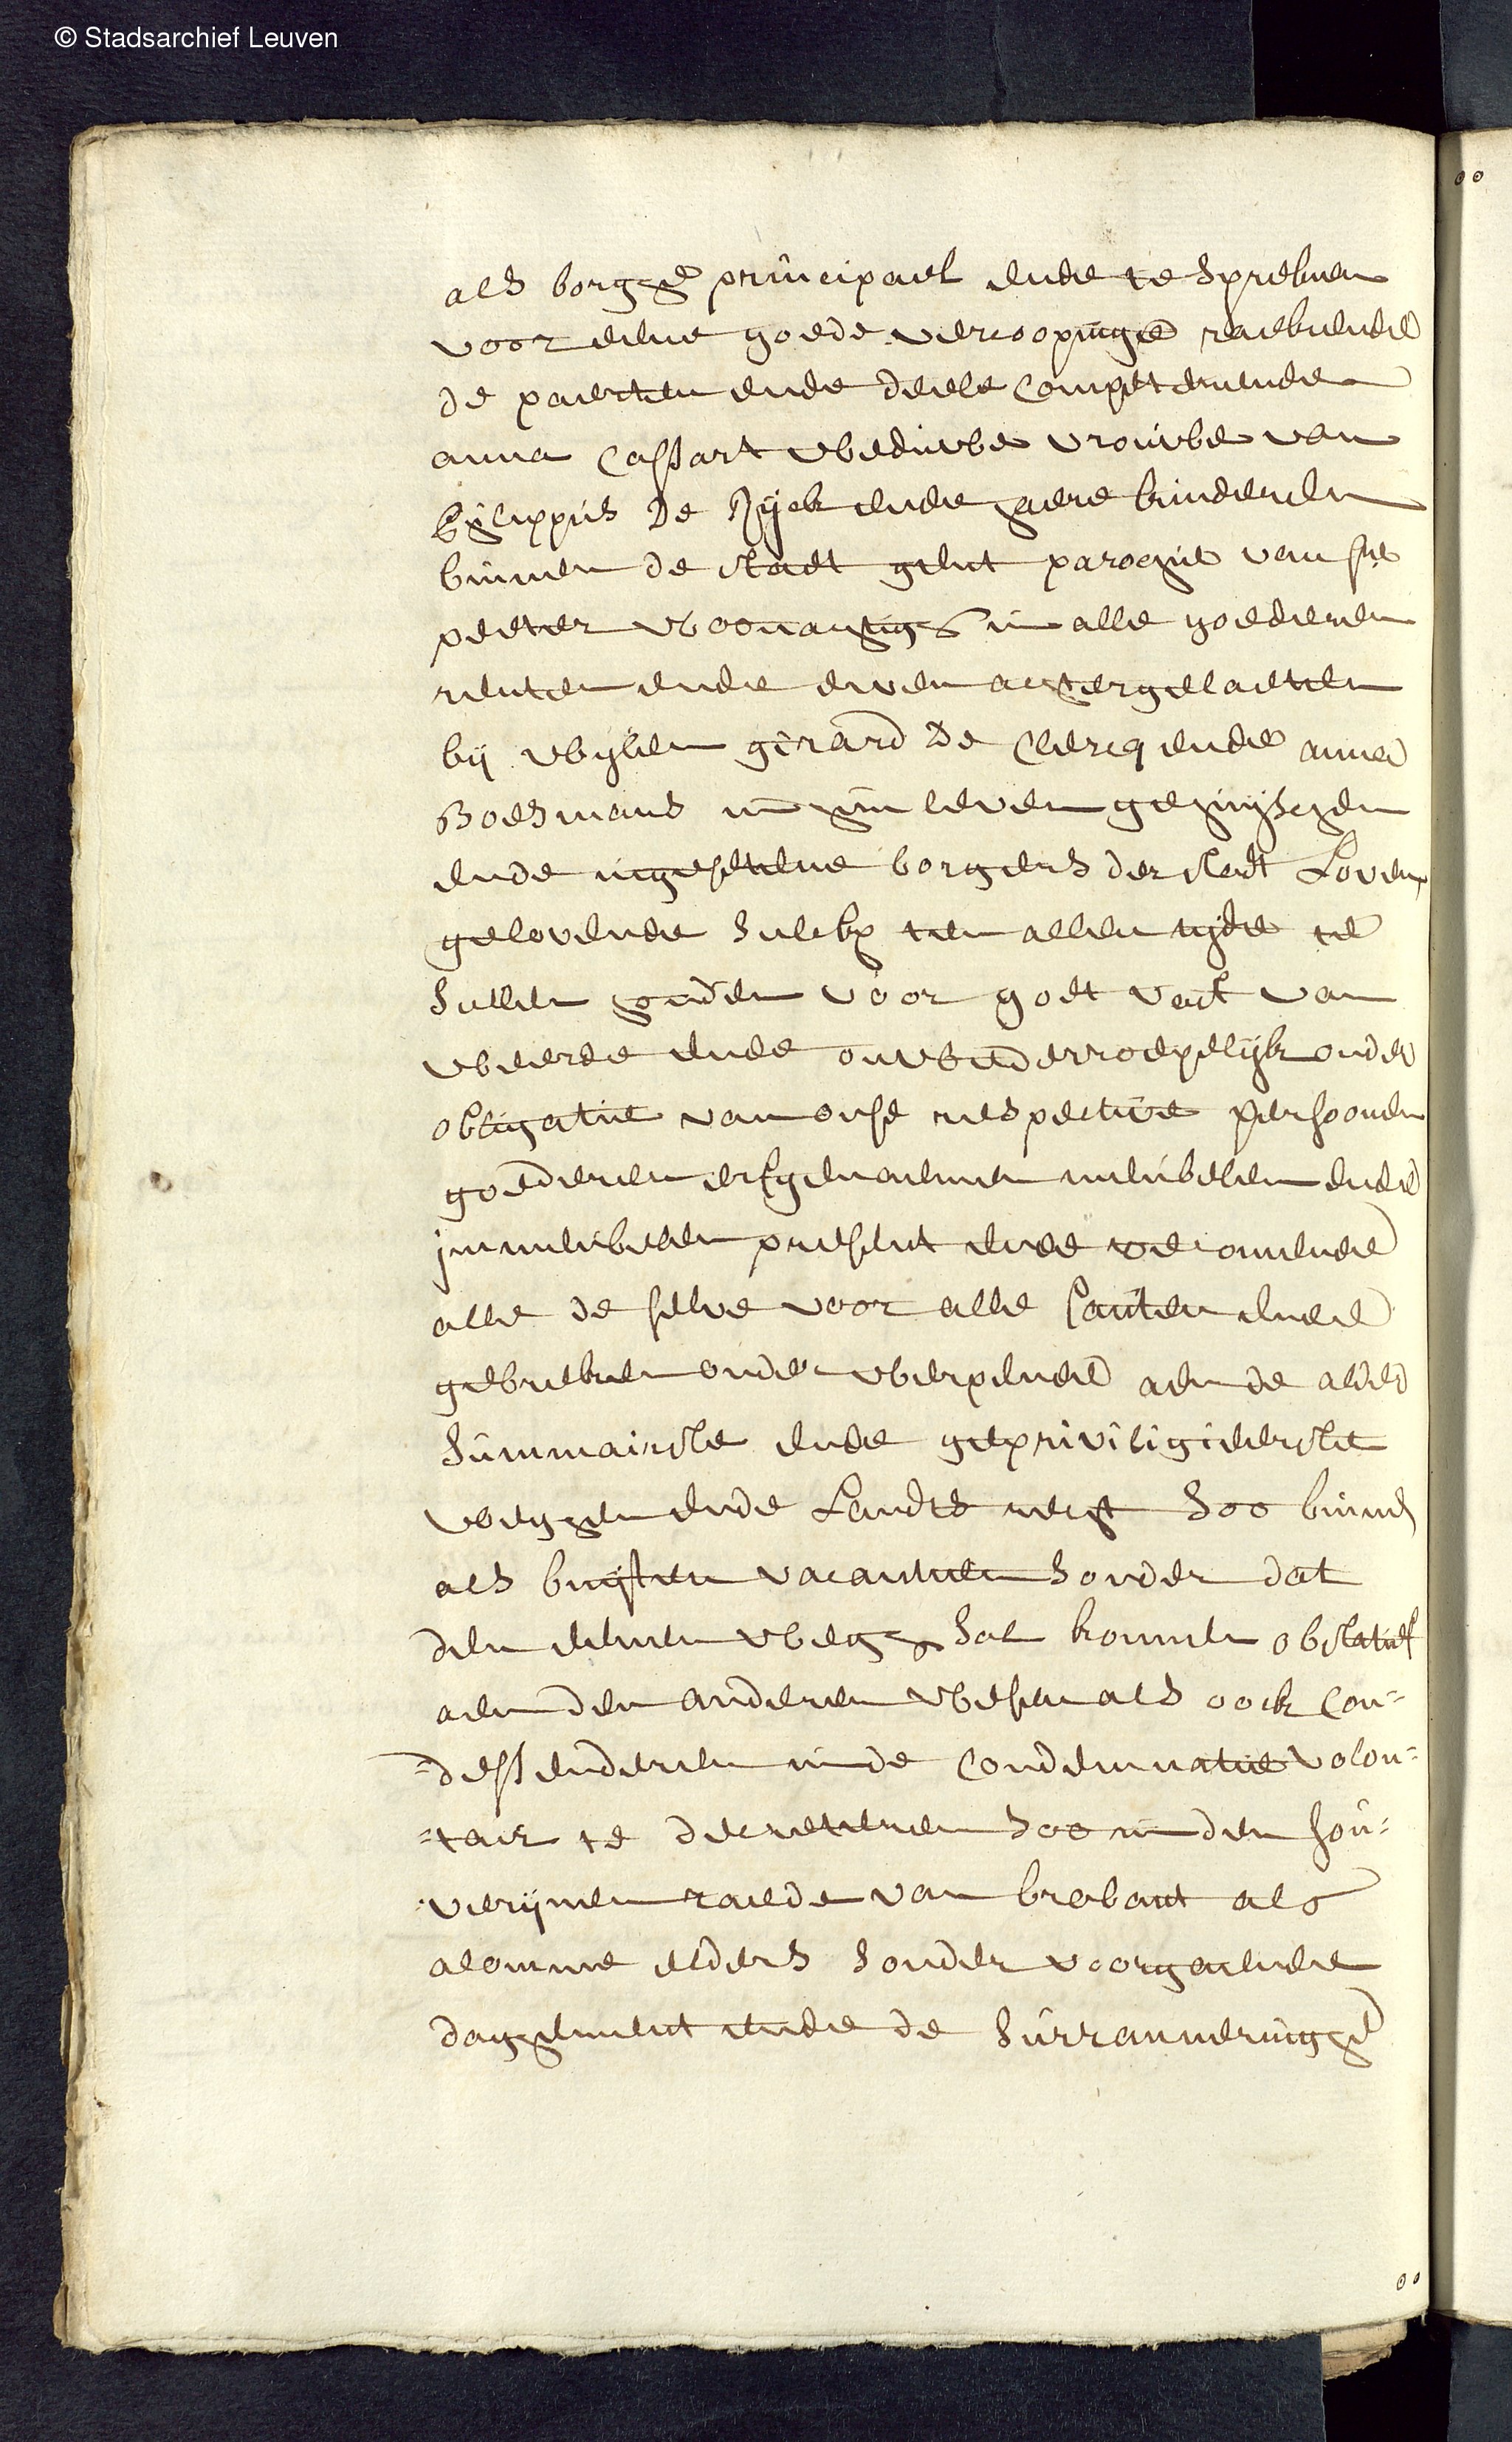 © Stadsarchief Leuven
als borghe principael ende te spreken
voor eene goede vercoopinge raekende
de paerten ende deele competerende
anna Cassart weduwe vrouwe van
philippus De Rijck ende haere kinderen
binnen de stadt Gent parochie van sint
peeter woonachtigh in alle goederen
renten ende erven achtergelaeten
bij wijlen gerard De Clercq ende anna
Bosmans in hun leven gehuijschen
ende ingesetene borgers der stadt Loven
gelovende sulckx ten allen tijde te
sullen houden voor goet vast van
weerde ende onwederroepelijck onder
obligatie van onse respective persoonen
goederen erfgenaemen meubelen ende
immeubelen present ende toecomende
alle de selve voor alle fauten ende
gebreken onder werpende aen de alder
summairste ende gepriviligieerste
weghen ende Landts recht soo binnen
als buijten vacantien sonder dat
den eenen wegh sal konnen obstatief
aen den anderen wesen als oock Con=
=dessenderen in de Condemnatie volon=
=tair te decreteren soo in den sou=
verijnen raede van brabant als
alomme elders sonder voorgaende
daghement ende de surranneringhe